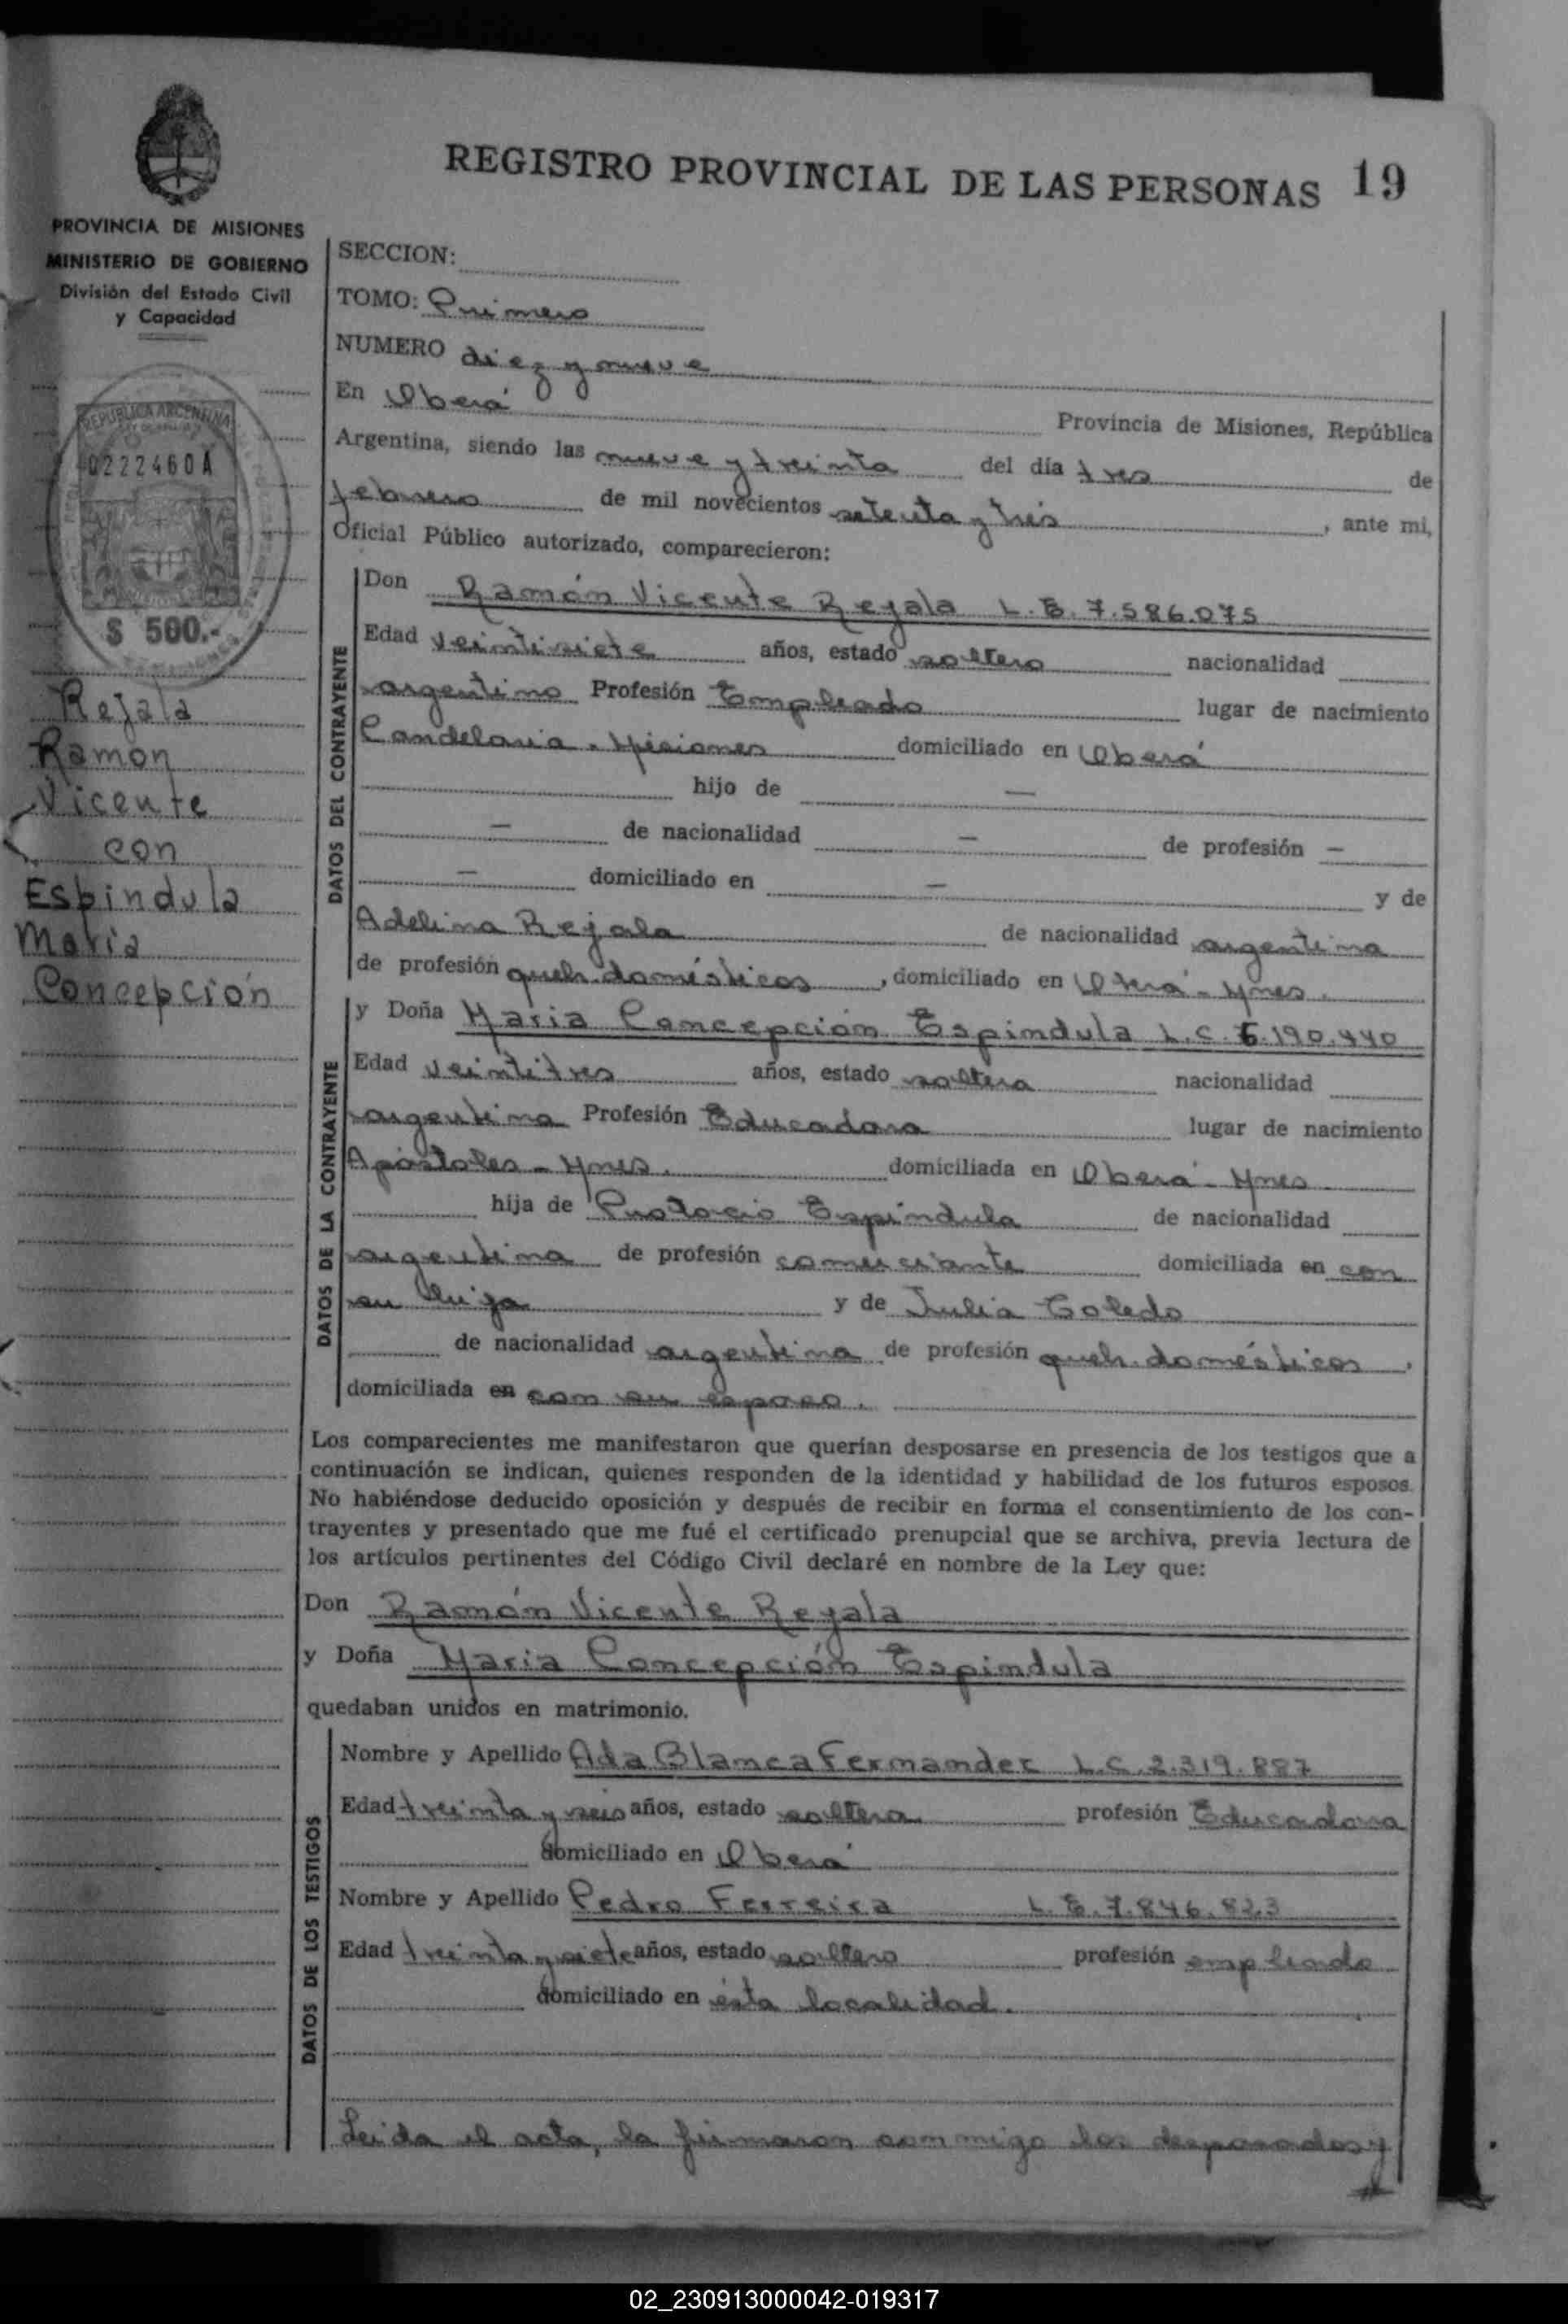 REGISTRO PROVINCIAL DE LAS PERSONAS 19
PROVINCIA DE MISIONES
MINISTERIO DE GOBIERNO
División del Estado Civil
y Capacidad
REPUBLICA ARGENTINA
0222460A
$ 500.-
Rejala
Ramon
Vicente
con
Espindula
Maria
Concepción
SECCION:
TOMO: Primero
NUMERO diez y nueve
En Oberá Provincia de Misiones, República
Argentina, siendo las nueve y treinta del día tres de
febrero de mil novecientos setenta y tres, ante mi,
Oficial Público autorizado, comparecieron:
DATOS DEL CONTRAYENTE
Don Ramón Vicente Rejala L.E. 7.586.075
Edad veintisiete años, estado soltero nacionalidad
argentino Profesión Empleado lugar de nacimiento
Candelaria - Misiones domiciliado en Oberá
hijo de —
— de nacionalidad — de profesión —
— domiciliado en — y de
Adelina Rejala de nacionalidad argentina
de profesión queh. domésticos, domiciliado en Oberá - Mnes.
DATOS DE LA CONTRAYENTE
y Doña Maria Concepción Espindula L.C. 6.190.440
Edad veintitres años, estado soltera nacionalidad
argentina Profesión Educadora lugar de nacimiento
Apóstoles - Mnes. domiciliada en Oberá - Mnes.
hija de Espindula de nacionalidad
argentina de profesión comerciante domiciliada en con
su hija y de Julia Toledo
de nacionalidad argentina de profesión queh. domésticos,
domiciliada en con su esposo.
Los comparecientes me manifestaron que querían desposarse en presencia de los testigos que a
continuación se indican, quienes responden de la identidad y habilidad de los futuros esposos.
No habiéndose deducido oposición y después de recibir en forma el consentimiento de los con-
trayentes y presentado que me fué el certificado prenupcial que se archiva, previa lectura de
los artículos pertinentes del Código Civil declaré en nombre de la Ley que:
Don Ramón Vicente Rejala
y Doña Maria Concepción Espindula
quedaban unidos en matrimonio.
DATOS DE LOS TESTIGOS
Nombre y Apellido Ada Blanca Fernandez L.C. 2.319.887
Edad treinta y seis años, estado soltera profesión Educadora
domiciliado en Oberá
Nombre y Apellido Pedro Ferreira L.E. 7.846.823
Edad treinta y siete años, estado soltero profesión empleado
domiciliado en ésta localidad.
Leida el acta, la firmaron conmigo los desposados y
02_230913000042-019317